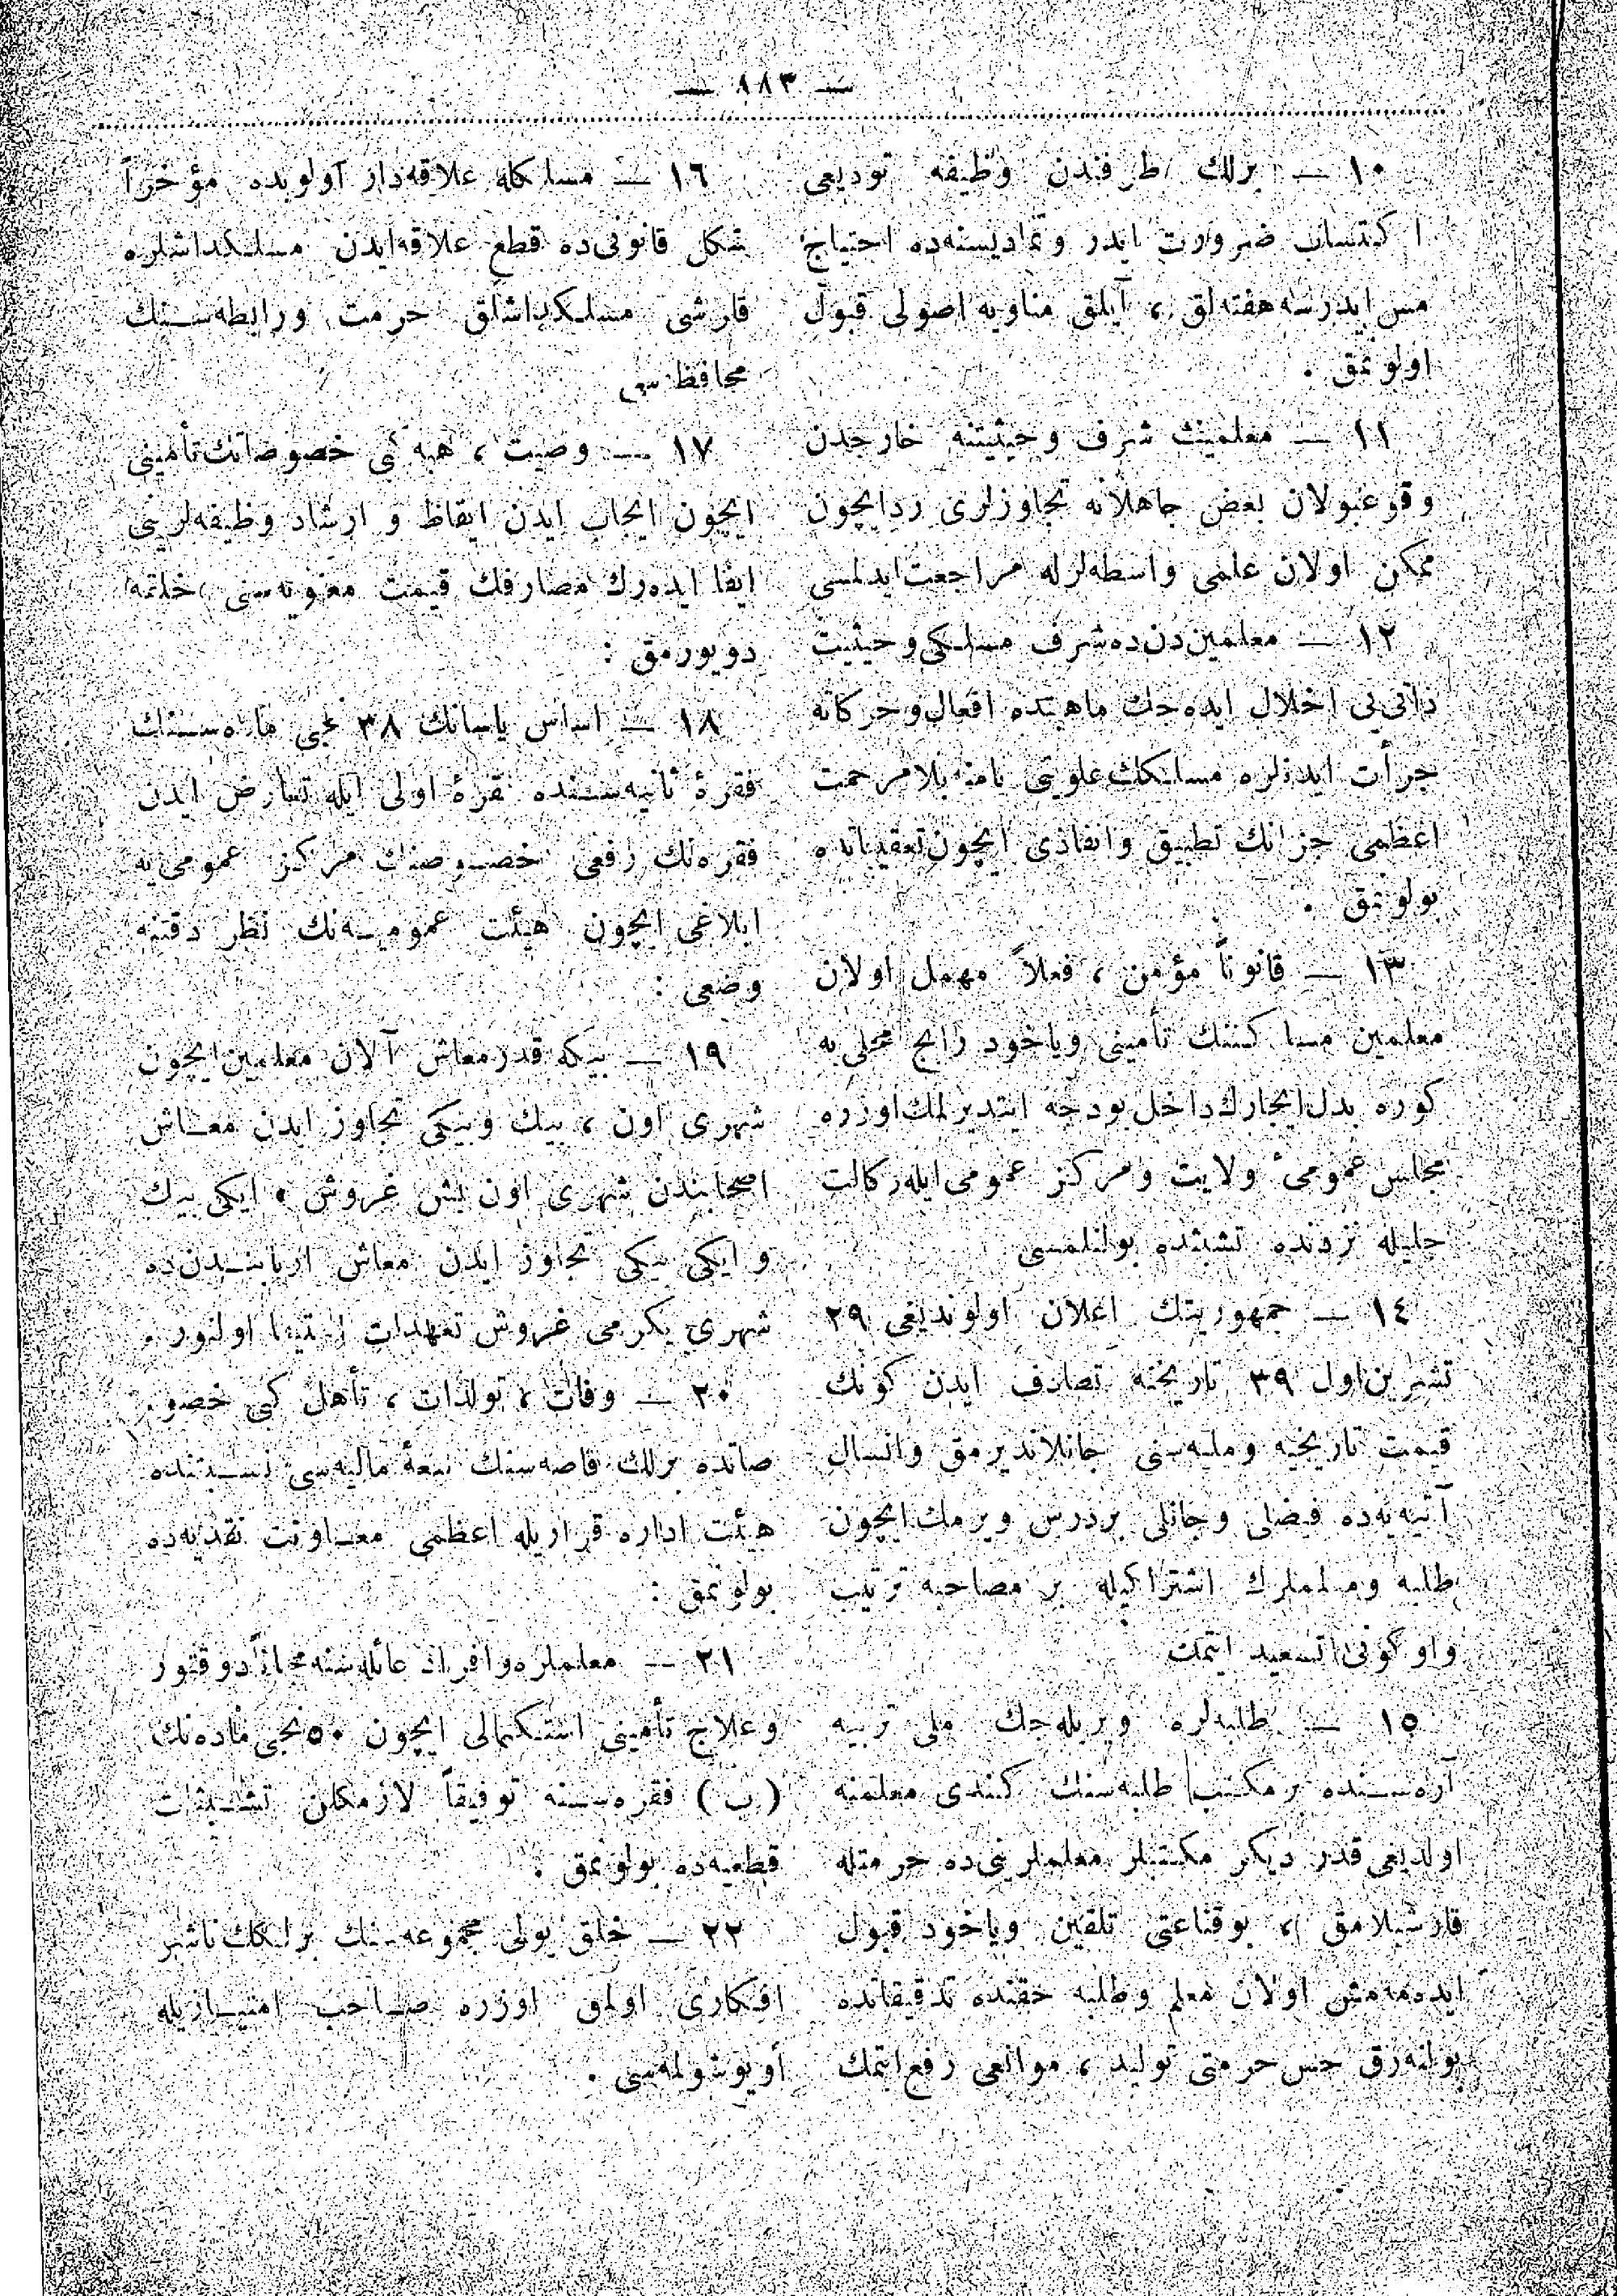 — ١٨٣ —
١٠ — برلك طرفندن وظيفه توديعى
ا كتساب ضرورت ايدر و تماديسنه‌ده احتياج
مس ايدرسه هفته‌لق ، آيلق مناوبه اصولى قبول
اولونمق .
١١ — معلمينك شرف وحيثيتنه خارجدن
وقوعبولان بعض جاهلانه تجاوزلرى ردايچون
ممكن اولان علمى واسطه‌لرله مراجعت ايدلمسى
١٢ — معلمين‌دن‌ده شرف مسلكى وحيثيت
ذاتى‌يى اخلال ايده‌جك ماهيتده افعال وحركاته
جرأت ايدنلره مسلكك علويتى نامنه بلامرحمت
اعظمى جزانك تطبيق وانفاذى ايچون تعقيباتده
بولونمق .
١٣ — قانوناً مؤمن ، فعلاً مهمل اولان
معلمين مسا كننك تأمينى وياخود رايج محلى‌يه
كوره بدل ايجارك داخل بودجه ايتديرلمك اوزره
مجلس عمومىٔ ولايت ومركز عمومى ايله‌ وكالت
جليله نزدنده تشبثده بولنلمسى
١٤ — جمهوريتك اعلان اولونديغى ٢٩
تشرين‌اول ٣٩ تاريخنه تصادف ايدن كونك
قيمت تاريخيه ومليه‌سنى جانلانديرمق وانسال
آتيه‌يه‌ده فيضلى وجانلى بردرس ويرمك ايچون
طلبه ومعلملرك اشتراكيله بر مصاحبه ترتيب
واو كونى تسعيد ايتمك
١٥ — طلبه‌لره ويريله‌جك ملى تربيه
آره‌سنده بر مكتب طلبه‌سنك كندى معلمنه
اولديغى قدر ديكر مكتبلر معلملرينى‌ده حرمتله
قارشيلامق ، بوقناعتى تلقين وياخود قبول
ايده‌مه‌مش اولان معلم وطلبه حقنده تدقيقاتده
بولنه‌رق حس حرمتى توليد ، موانعى رفع ايتمك
١٦ — مسلكله علاقه‌دار اولوبده مؤخراً
شكل قانونى‌ده قطع علاقه‌ايدن مسلكداشلره
قارشى مسلكداشلق حرمت ورابطه‌سنك
محافظه‌سى
١٧ — وصيت ، هبه كبى خصوصاتك تأمينى
ايچون ايجاب ايدن ايقاظ و ارشاد وظيفه‌لرينى
ايفا ايده‌رك مصارفك قيمت معنويه‌سنى خلقه
دويورمق :
١٨ — اساس ياسانك ٣٨ نجى ماده‌سنك
فقرهٔ ثانيه‌سنده فقرهٔ اولى ايله تعارض ايدن
فقره‌نك رفعى خصوصنك مركز عمومى‌يه
ابلاغى ايچون هيئت عموميه‌نك نظر دقتنه
وضعى :
١٩ — بيكه قدر معاش آلان معلمين ايچون
شهرى اون ، بيك وبيكى تجاوز ايدن معاش
اصحابندن شهرى اون بش غروش ، ايكى بيك
و ايكى بيكى تجاوز ايدن معاش اربابندن‌ده
شهرى يكرمى غروش تعهدات استيفا اولنور .
٢٠ — وفات ، تولدات ، تأهل كبى خصو-
صاتده برلك قاصه‌سنك سعهٔ ماليه‌سى نسبتنده
هيئت اداره قراريله اعظمى معاونت نقديه‌ده
بولونمق :
٢١ — معلملره وافراد عائله‌سنه مجاناً دوقتور
وعلاج تأمينى استكمالى ايچون ٥٠نجى ماده‌نك
(ب) فقره‌سنه توفيقاً لازمكلن تشبثات
قطعيه‌ده بولونمق .
٢٢ — خلق يولى مجموعه‌سنك برلكك ناشر
افكارى اولمق اوزره صاحب امتيازيله
اويوشولمه‌سى .